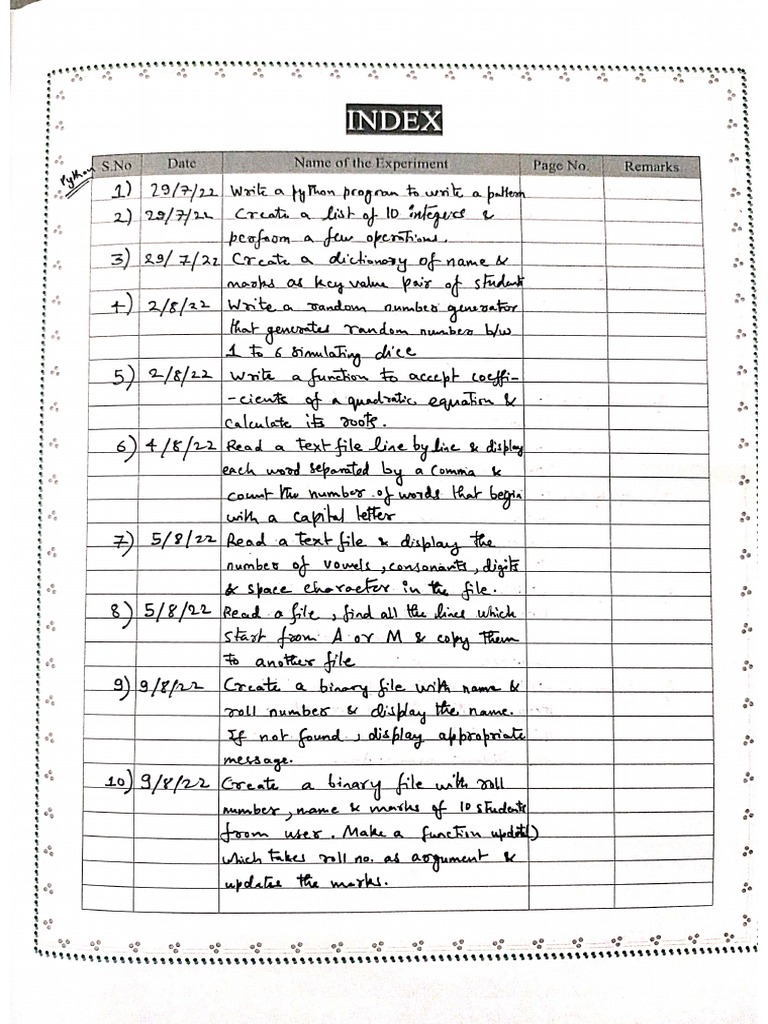 INDEX
S.No Date Name of the Experiment Page No. Remarks
Python
1) 29/7/22 Write a python program to write a pattern
2) 29/7/22 Create a list of 10 integers &
perform a few operations.
3) 29/7/22 Create a dictionary of name &
marks as key value pair of students
4) 2/8/22 Write a random number generator
that generates random number b/w
1 to 6 simulating dice
5) 2/8/22 Write a function to accept coeffi-
-cients of a quadratic equation &
calculate its roots.
6) 4/8/22 Read a text file line by line & display
each word separated by a comma &
count the number of words that begin
with a capital letter
7) 5/8/22 Read a text file & display the
number of vowels, consonants, digits
& space character in the file.
8) 5/8/22 Read a file, find all the lines which
start from A or M & copy them
to another file
9) 9/8/22 Create a binary file with name &
roll number & display the name.
If not found, display appropriate
message.
10) 9/8/22 Create a binary file with roll
number, name & marks of 10 students
from user. Make a function update()
which takes roll no. as argument &
updates the marks.